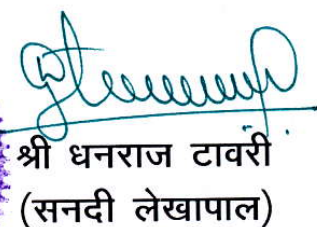 श्री धनराज टावरी
(सनदी लेखापाल)